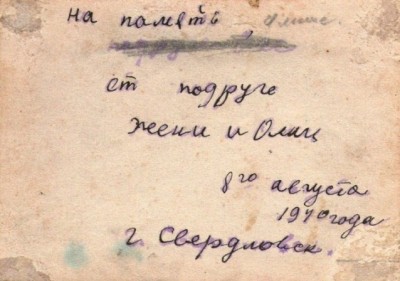 на память
от подруге
Жени и Олиц
8го августа
1940года
г. Свердловск.